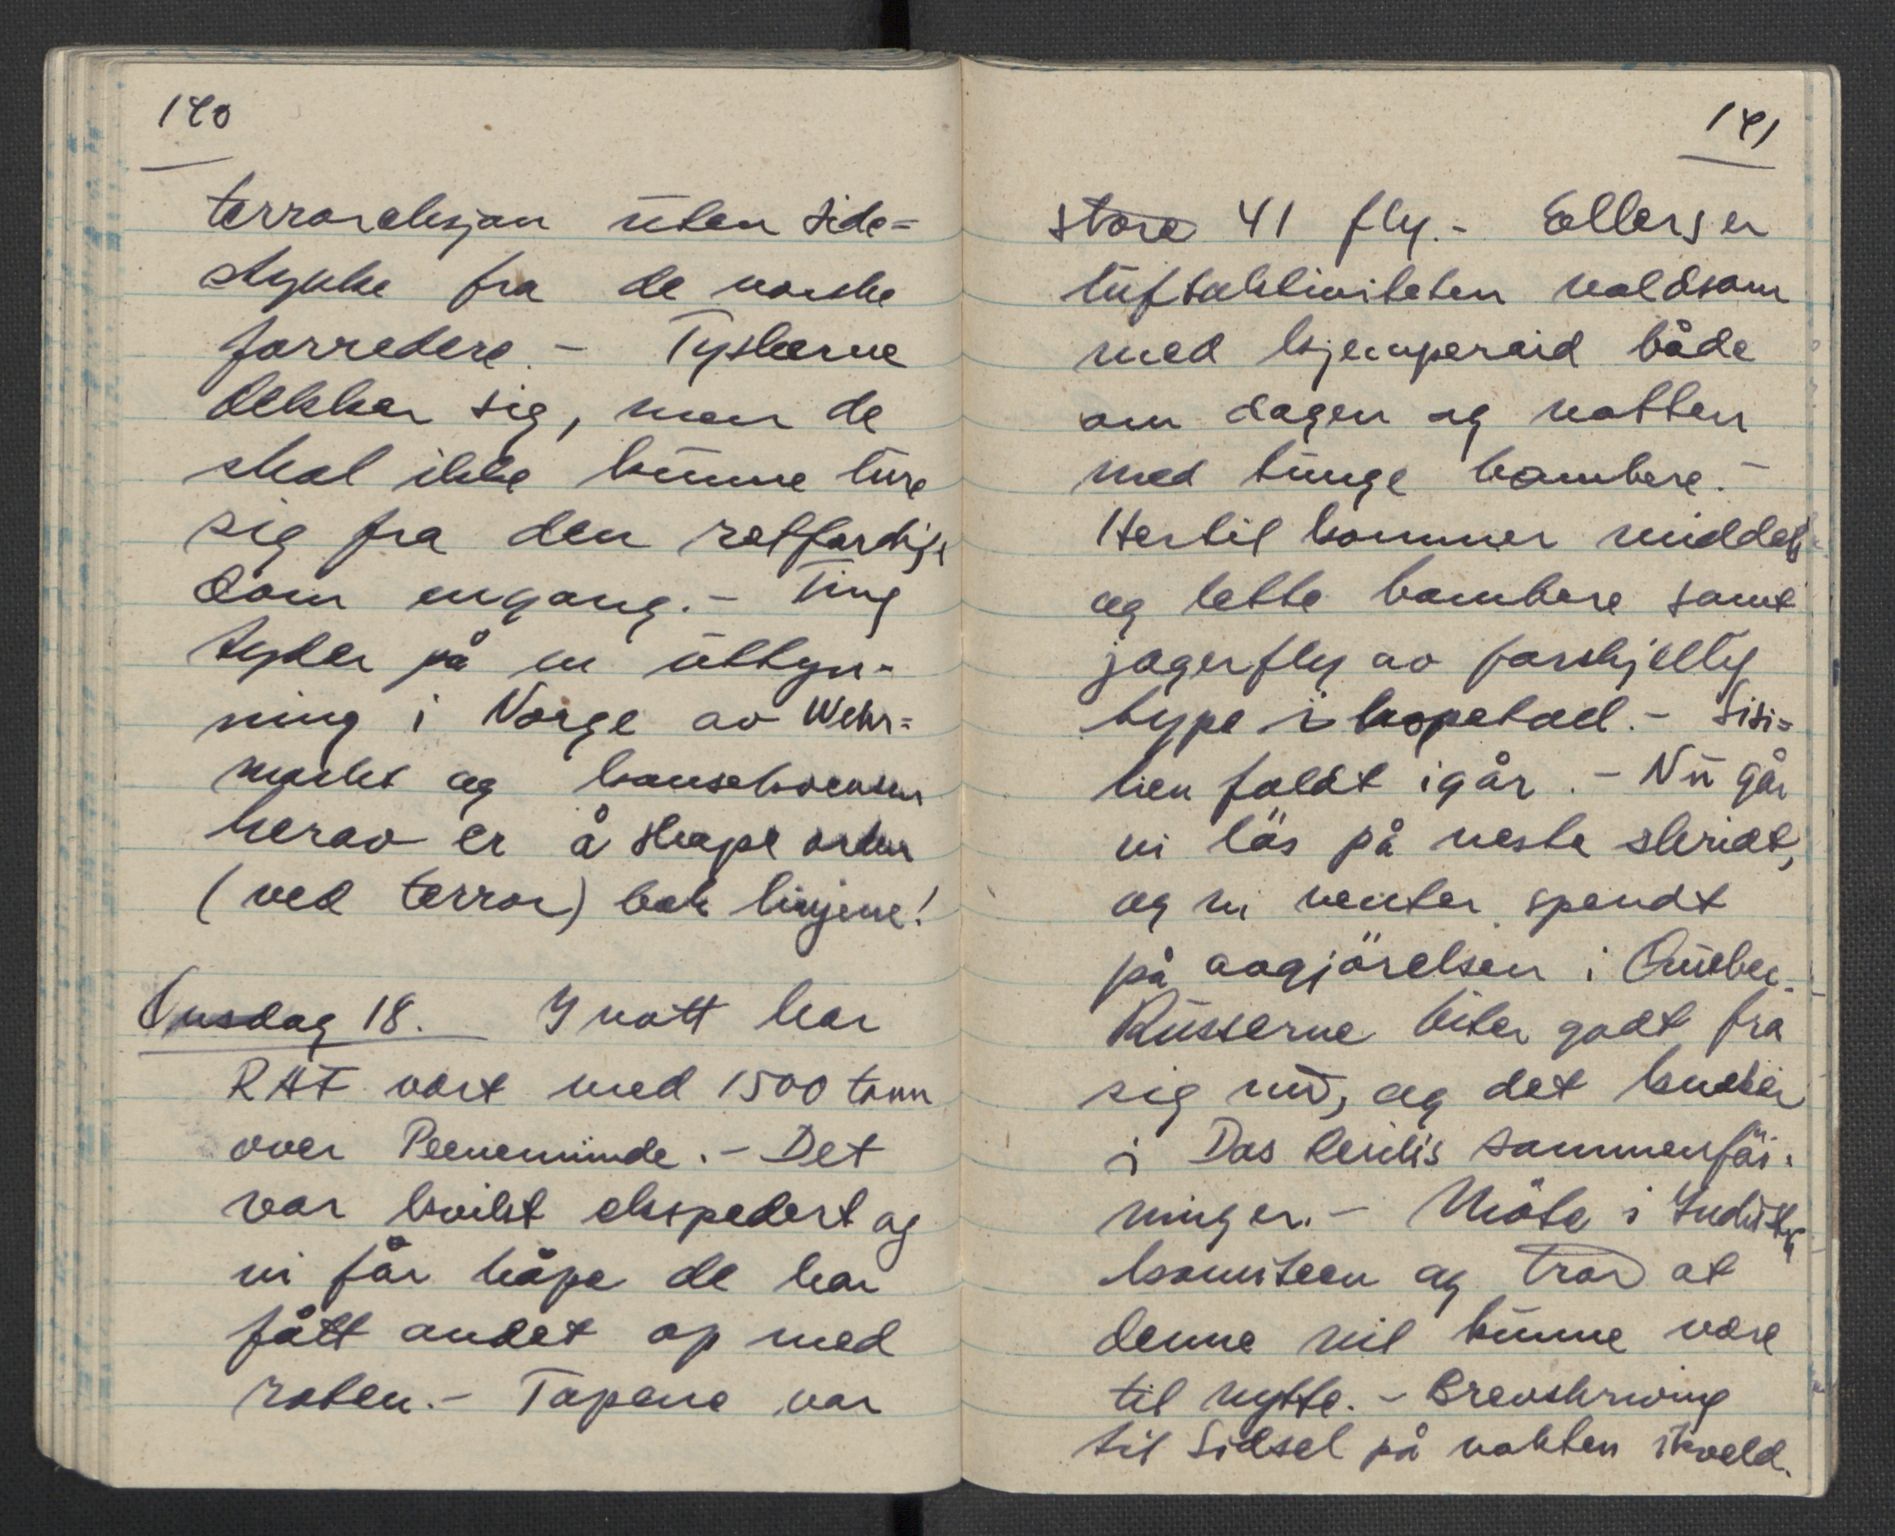 140
terroraksjon uten side=
stykke fra de norske
forredere. - Tyskerne
dekker sig, men de
skal ikke kunne lure
sig fra den retfærdige
dom engang. - Ting
tyder på en uttyn-
ning i Norge av Wehr=
macht og konsekvensen
herav er å skape orden
(ved terror) bak linjene!
Onsdag 18. I natt har
RAF vært med 1500 tonn
over Peenemünde. - Det
var kvikt ekspedert og
vi får håpe de har
fått andet op med
roten. - Tapene var
141
store 41 fly. - Ellers er
luftaktiviteten voldsom
med kjemperaid både
om dagen og natten
med tunge bombere. -
Hertil kommer middels
og lette bombere samt
jagerfly av forskjellig
type i hopetall. - Sisi=
lien faldt igår. - Nu går
vi løs på neste skridt,
og vi venter spendt
på avgjörelsen i Quebec. -
Russerne biter godt fra
sig nu, og det knaker
i Das Reichs sammenföi-
ninger. - Möte i Industri
komiteen og tror at
denne vil kunne være
til nytte. - Brevskrivning
til Sidsel på vakten ikveld.